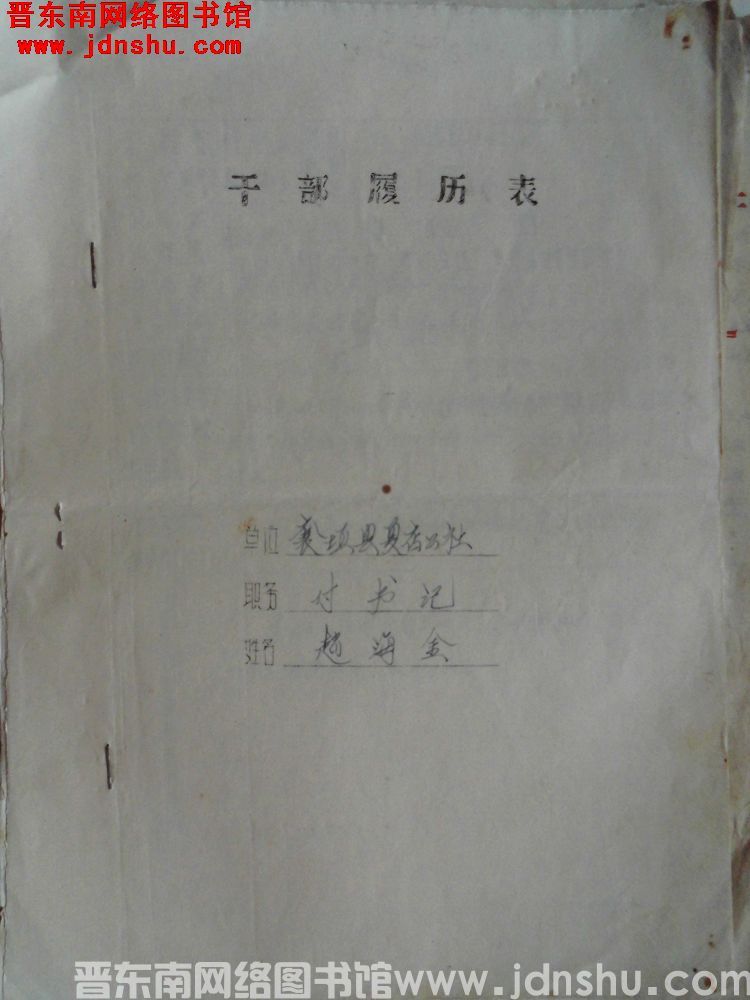 晋东南网络图书馆
www. jdnshu. com
干部履历表
单位 襄垣县夏店公社
职务 付书记
姓名 赵海金
晋东南网络图书馆www.jdnshu.com